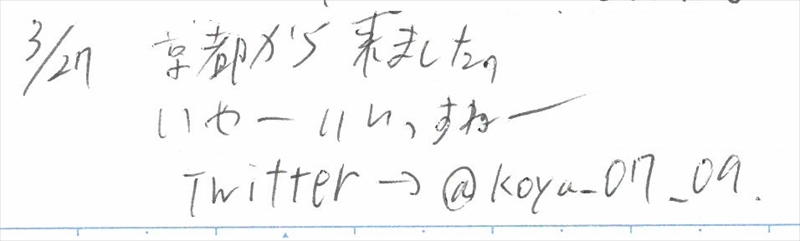 3/27 京都から来ました。
いやーいいっすねー
Twitter→@koya_07_09.